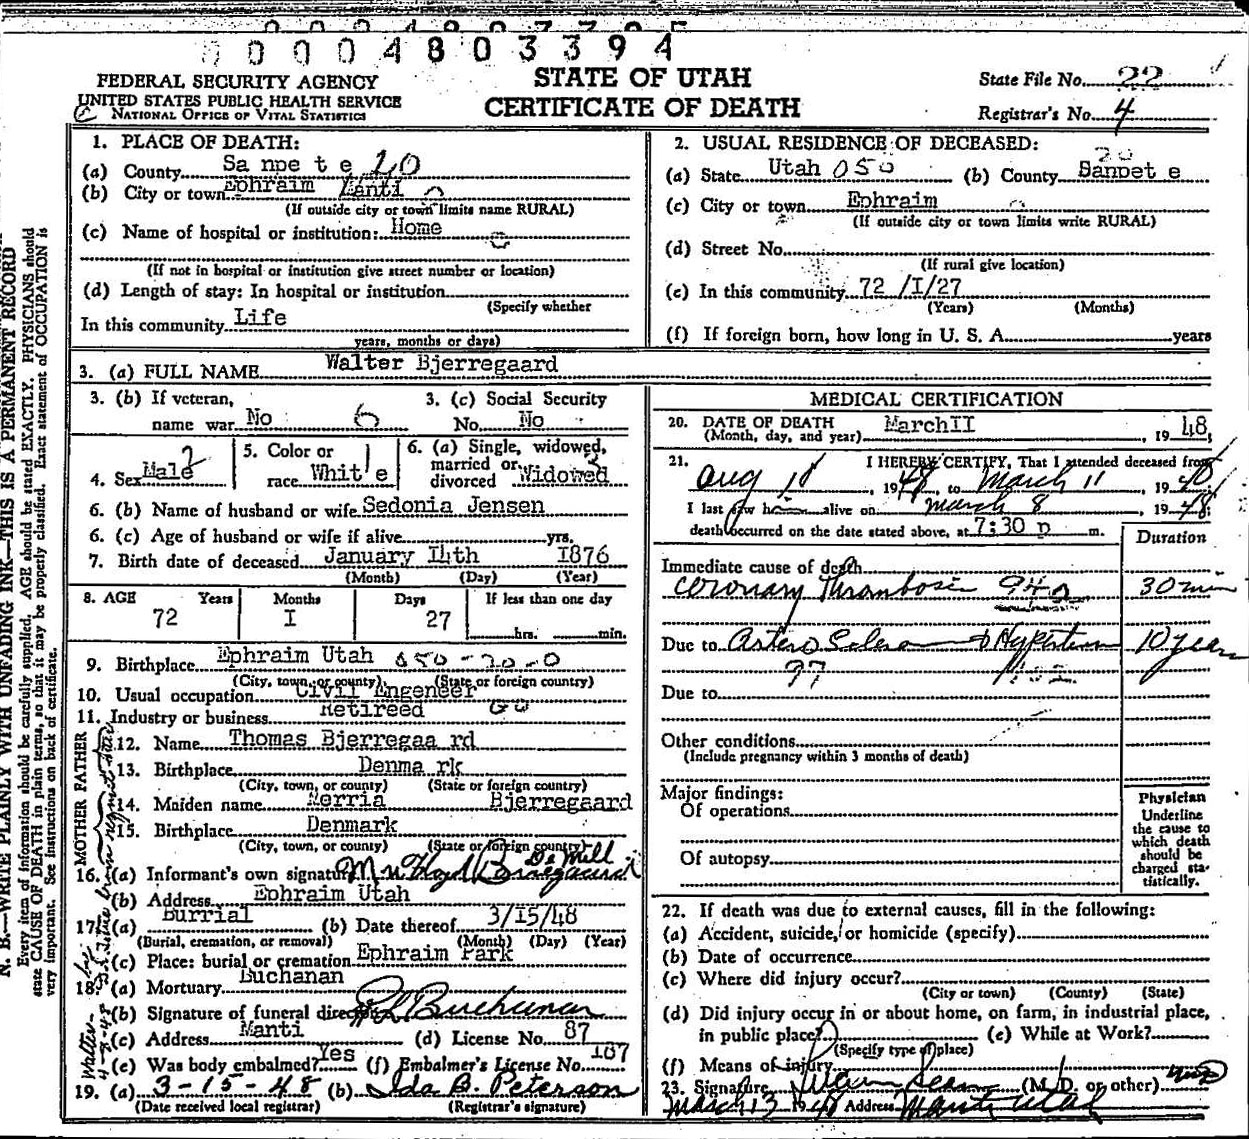 0000480 3394
FEDERAL SECURITY AGENCY
UNITED STATES PUBLIC HEALTH SERVICE
NATIONAL OFFICE OF VITAL STATISTICS
STATE OF UTAH
CERTIFICATE OF DEATH
State File No. 22
Registrar's No. 4
N. B.—WRITE PLAINLY WITH UNFADING INK—THIS IS A PERMANENT RECORD
Every item of information should be carefully supplied. AGE should be stated EXACTLY. PHYSICIANS should
state CAUSE OF DEATH in plain terms, so that it may be properly classified. Exact statement of OCCUPATION is
very important. See instructions on back of certificate.
1. PLACE OF DEATH:
(a) County Sa npe t e 20
(b) City or town Ephraim Manti
(If outside city or town limits name RURAL)
(c) Name of hospital or institution: Home
(If not in hospital or institution give street number or location)
(d) Length of stay: In hospital or institution
(Specify whether
In this community Life
years, months or days)
2. USUAL RESIDENCE OF DECEASED:
(a) State Utah 050 (b) County Sanpet e 20
(c) City or town Ephraim
(If outside city or town limits write RURAL)
(d) Street No.
(If rural give location)
(e) In this community 72 /I/27
(Years) (Months)
(f) If foreign born, how long in U. S. A. years
3. (a) FULL NAME Walter Bjerregaard
3. (b) If veteran, name war No 6
3. (c) Social Security No. No
4. Sex Male 2
5. Color or race Whit e 1
6. (a) Single, widowed, married or divorced Widowed 3
6. (b) Name of husband or wife Sedonia Jensen
6. (c) Age of husband or wife if alive yrs.
7. Birth date of deceased January I4th I876
(Month) (Day) (Year)
8. AGE Years Months Days If less than one day
72 I 27 hrs. min.
9. Birthplace Ephraim Utah 050-20-0
(City, town, or county) (State or foreign country)
10. Usual occupation Civil Engeneer
11. Industry or business Retireed
FATHER
12. Name Thomas Bjerregaa rd
13. Birthplace Denma rk
(City, town, or county) (State or foreign country)
MOTHER
14. Maiden name Merria Bjerregaard
15. Birthplace Denmark
(City, town, or county) (State or foreign country)
16. (a) Informant's own signature Mrs Floyd Bjerregaard De Mill
(b) Address Ephraim Utah
17. (a) Burrial (b) Date thereof 3/15/48
(Burial, cremation, or removal) (Month) (Day) (Year)
(c) Place: burial or cremation Ephraim Park
18. (a) Mortuary Buchanan
(b) Signature of funeral director Buchanan
(c) Address Manti (d) License No. 87
(e) Was body embalmed? Yes (f) Embalmer's License No. 187
19. (a) 3-15-48 (b) Ida B. Peterson
(Date received local registrar) (Registrar's signature)
MEDICAL CERTIFICATION
20. DATE OF DEATH MarchII, 19 48
(Month, day, and year)
21. I HEREBY CERTIFY, That I attended deceased from
Aug 11, 19 to March 11, 19 48
I last saw him alive on March 8, 19 48;
death occurred on the date stated above, at 7:30 p m.
Duration
Immediate cause of death
Coronary Thrombosis 94a 30 min
Due to Artero Scleros + Hypertension 10 years
97 102
Due to
Other conditions
(Include pregnancy within 3 months of death)
Major findings:
Of operations
Of autopsy
Physician
Underline
the cause to
which death
should be
charged sta-
tistically.
22. If death was due to external causes, fill in the following:
(a) Accident, suicide, or homicide (specify)
(b) Date of occurrence
(c) Where did injury occur?
(City or town) (County) (State)
(d) Did injury occur in or about home, on farm, in industrial place,
in public place? (e) While at Work?
(Specify type of place)
(f) Means of injury
23. Signature (M. D. or other) MD
March 13 1948 Address Manti Utah